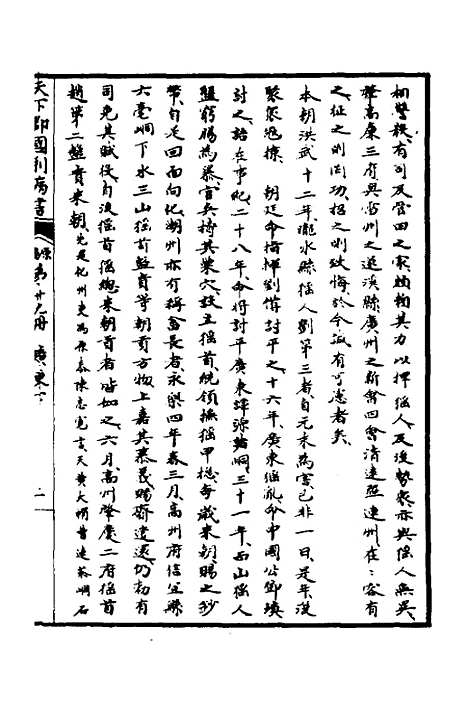 相讐殺有司及管田之家賴其力以捍猺人及後勢衆亦與猺人無異
種高廉三府與雷州之遂溪縣廣州之新會四會清遠連州在々客有
之征之則罔功招之則致悔於今誠有可慮者矣
本朝洪武十二年瀧水縣猺人劉第三者自元末為當已非一日是年後
聚衆冦掠 朝廷命指揮劉備討平之十六年廣東猺亂命申國公鄧鎮
討之語在事紀二十八年命將討平廣東譚源峒三十一年西山猺人
盤窮腸為暴官兵搗其巢穴設立猺首統領撫猺甲總每歲來朝賜之鈔
幣自是回面向化湖州亦有稱畬長者永樂四年春三月高州府信宜縣
六毫峒下水三山猺首盤貴等朝貢方物上嘉其慕義賜賚遣還仍勅有
司免其賦役自後猺首猺總來朝貢者皆如之六月高州肇慶二府猺首
趙第二盤貴來朝先是化州吏馮原泰陳志寬言天黃大帽曹連茶峒石
天下郡國利病書
原第廿九冊 廣東下
二